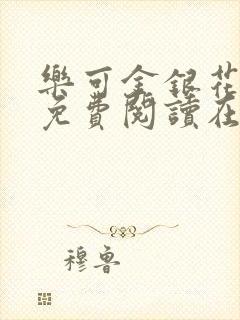 樂可金銀花
免費閱讀在
穆魯